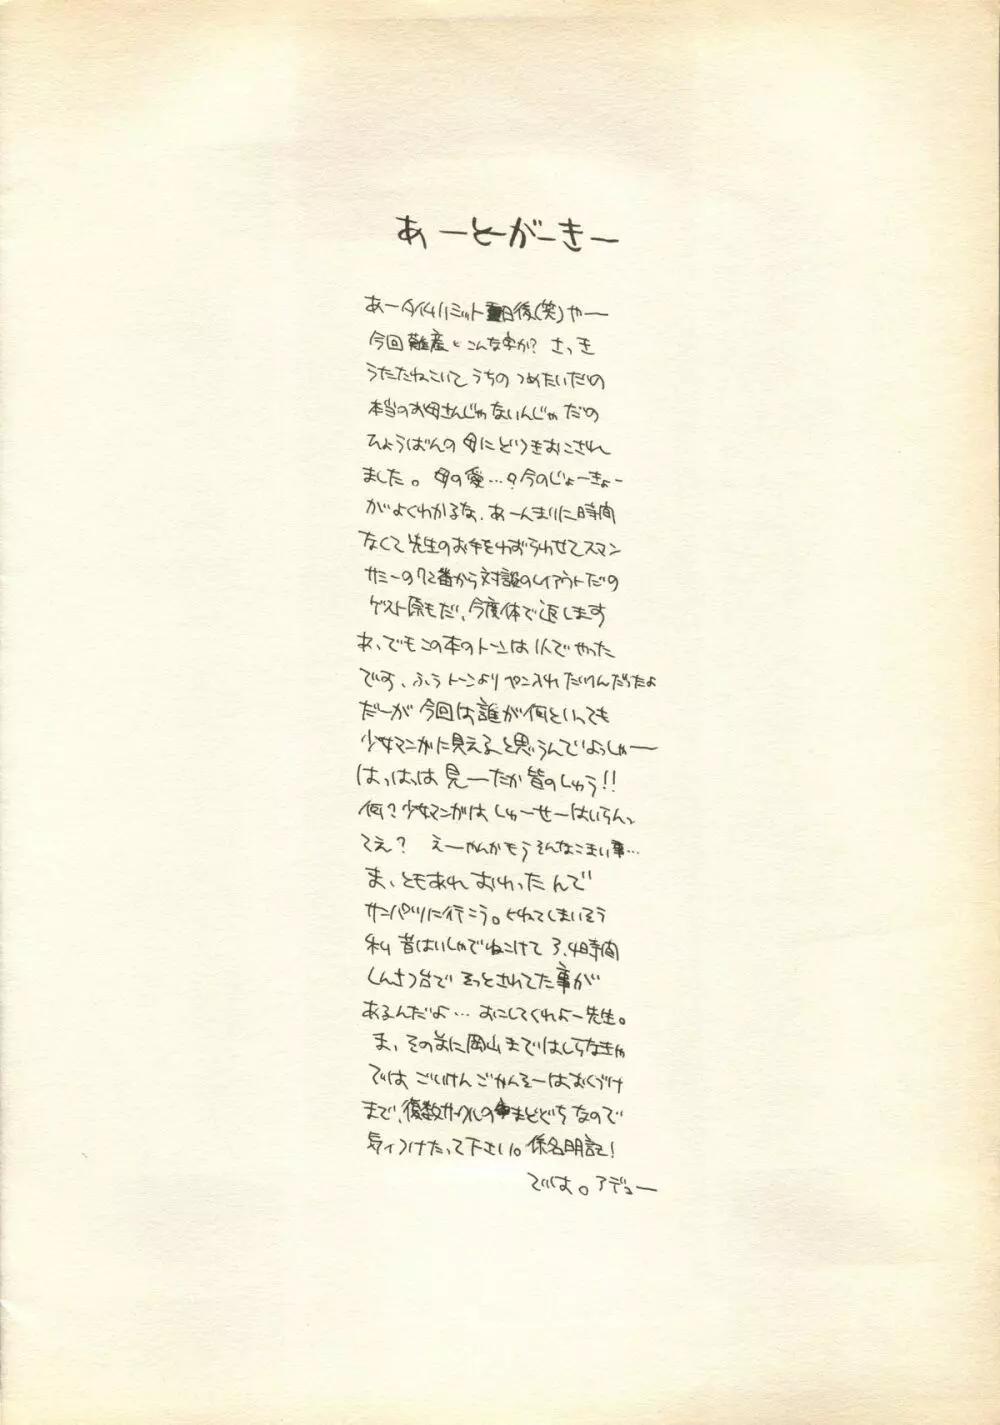 あーとーがーきー
あータイムリミット重日後(笑)やー
今回難産とこんな字か? さっき
うたたねこいてうちのつめたいだの
本当のお母さんじゃないんじゃだの
ひょうばんの母にどつきおこされ
ました。母の愛…?今のじょーきょー
がよくわかるな、あーんまりに時間
なくて先生のお手をわずらわせてスマン
サミーの72番から対談のレイアウトだの
ゲスト原もだ、今度体で返します
あ、でもこの本のトーンは1人でやった
です、ふう トーンより ペン入れ だけんだったよ
だーが 今回は誰が何といっても
少女マンガに見えると思うんでよっしゃー
はっはっは 見ーたか皆のしゅう!!
何?少女マンガは しゅーせーはいらんっ
てえ? えーやんかもう そんなこまい事…
ま、ともあれ おわったんで
サンパツに行こう。とれてしまいそう
私 昔はいしゃでねこけて 3、4時間
しんさつ台で そっとされてた事が
あるんだよ… おこしてくれよー先生。
ま、その前に岡山まではしらなきゃ
では ごいけん ごかんそーはおくづけ
まで、複数サークルのまどぐち なので
気ィつけたって下さい。係名明記!
では。アデュー